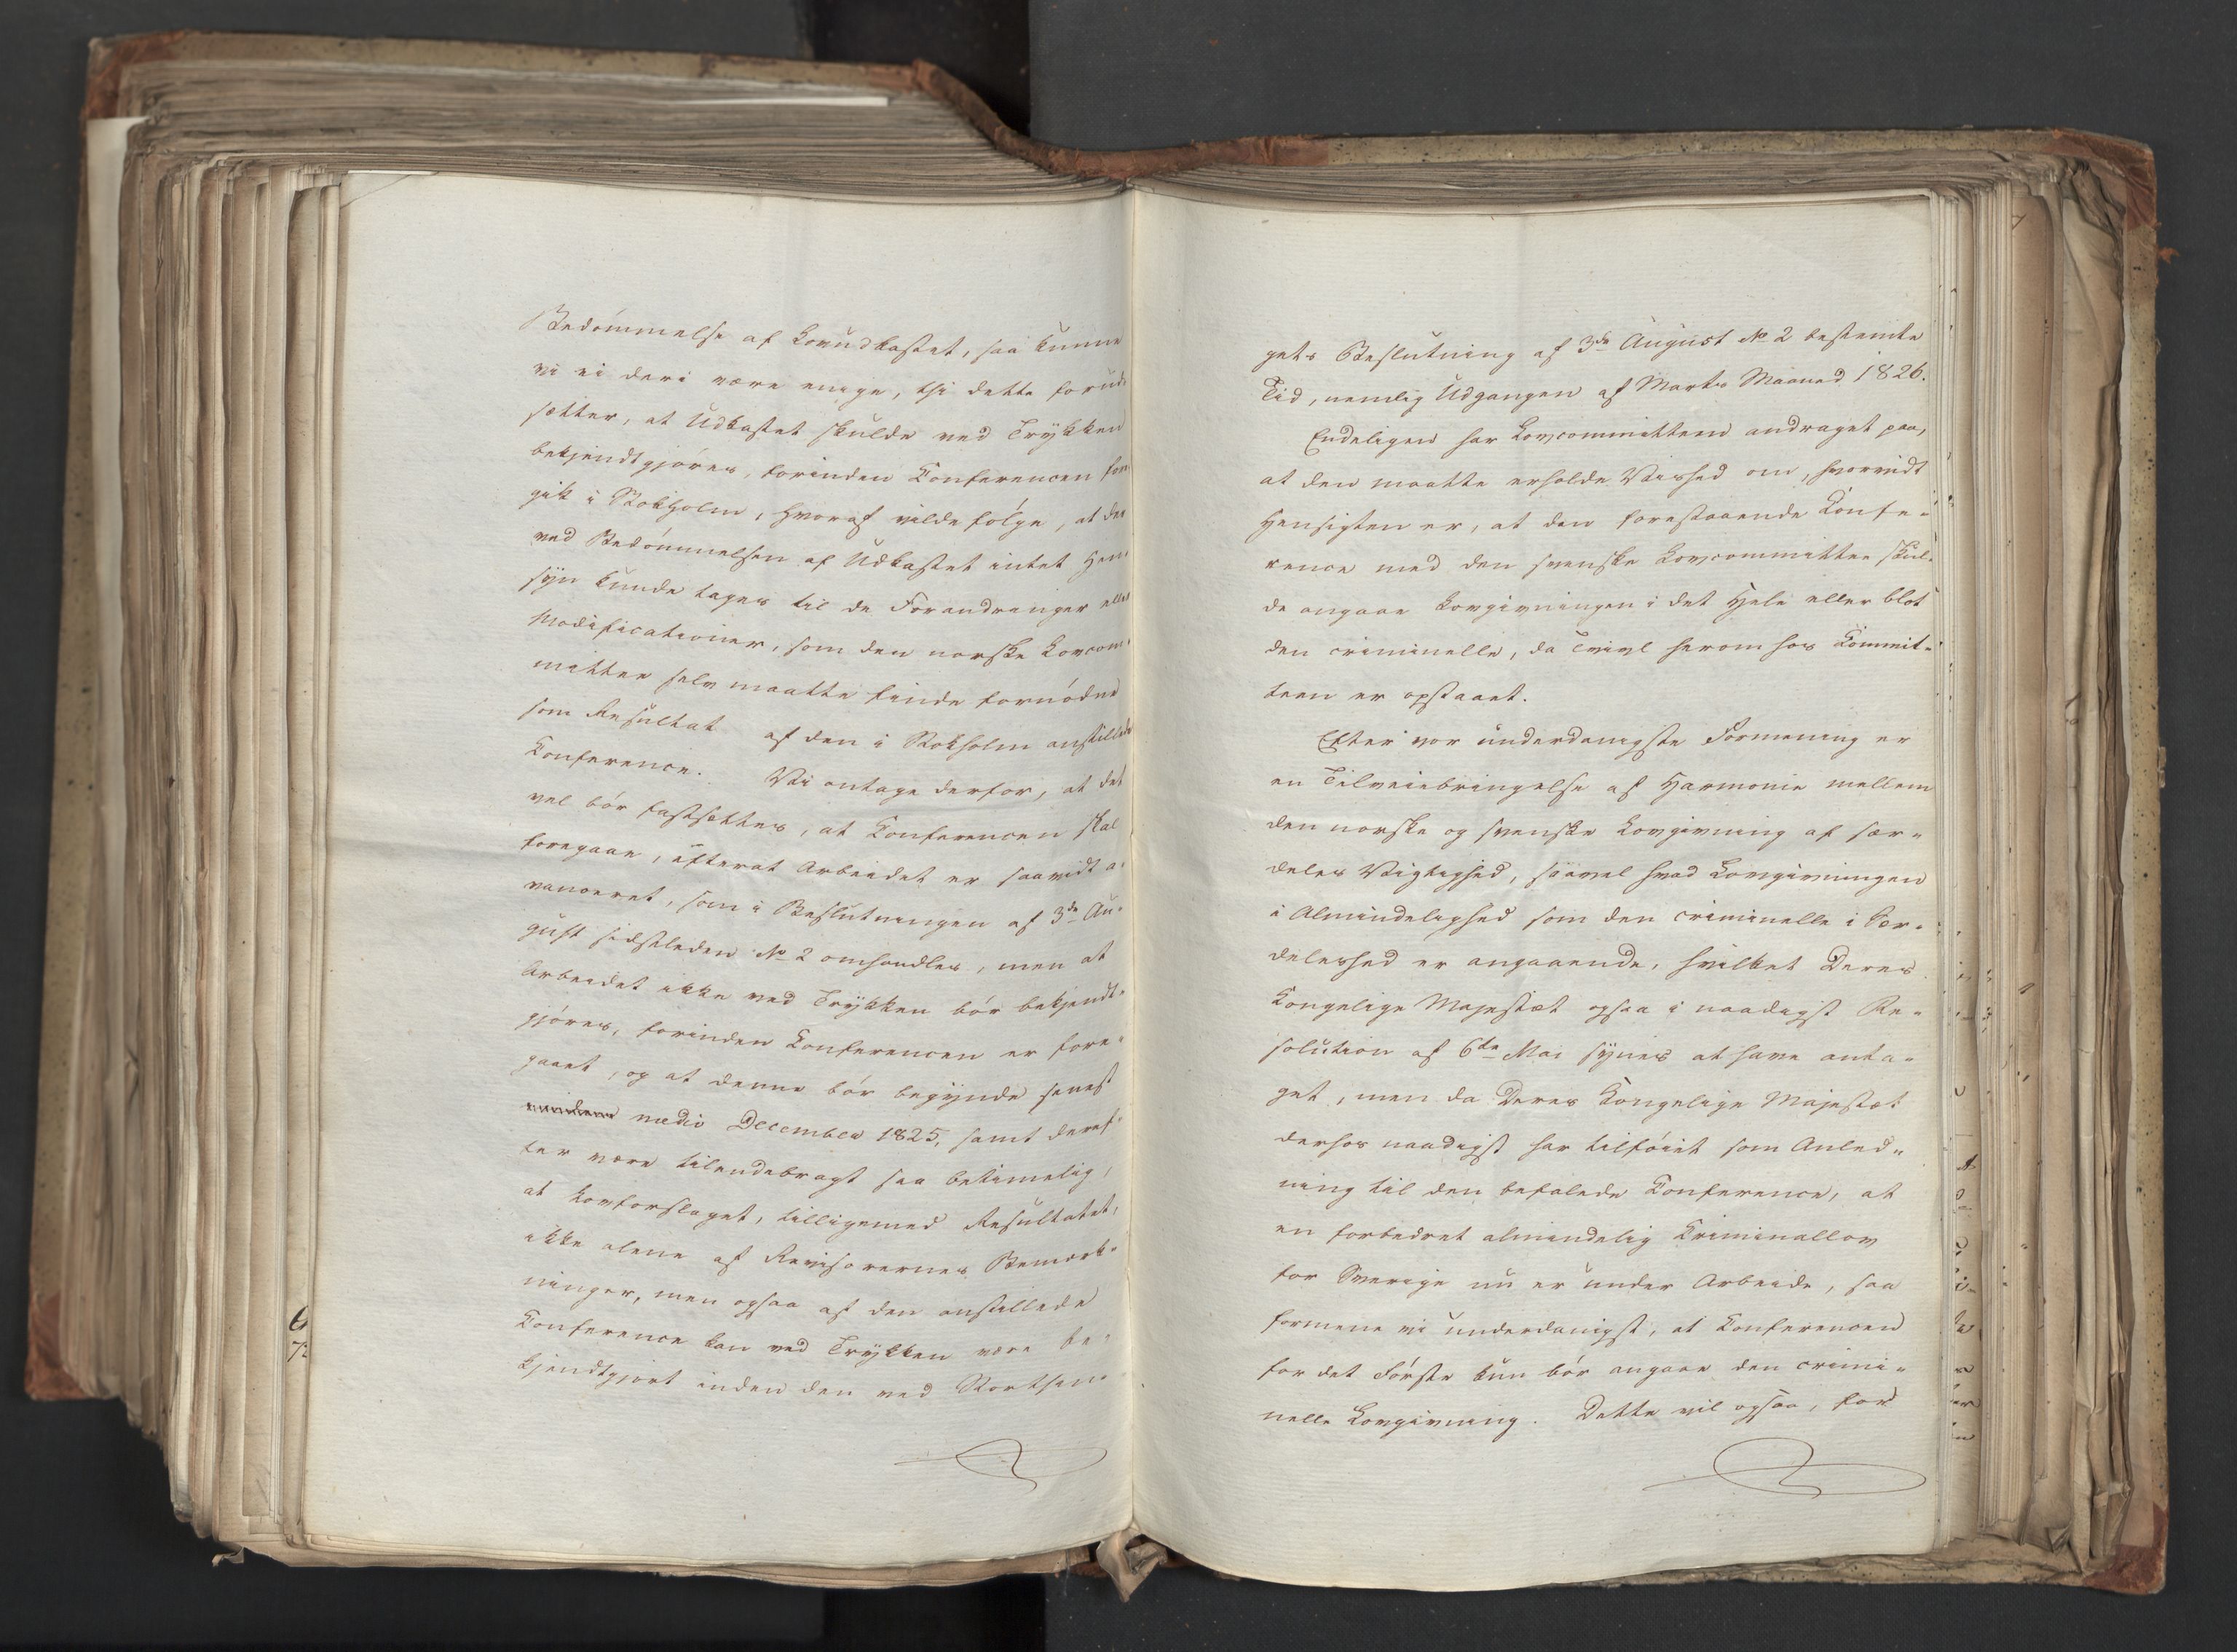 Bedømmelse af Lovudkastet, saa kunne
vi ei deri være enige, thi dette forud-
sætter, at Udkastet skulde ved Trykken
bekjendtgjøres, forinden Conferencen fore-
gik i Stokholm, hvoraf vilde følge, at der
ved Bedømmelsen af Udkastet intet Hen-
syn kunde tages til de Forandringer eller
Modificationer, som den norske Lovcom-
mittee selv maatte finde fornødne
som Resultat af den i Stokholm anstillede
Conference. Vi antage derfor, at det
vel bør fastsættes, at Conferencen skal
foregaae, efterat Arbeidet er saavidt a-
vanceret, som i Beslutningen af 3de Au-
gust sidstleden No 2 omhandles, men at
Arbeidet ikke ved Trykken bør bekjendt-
gjøres, forinden Conferencen er fore-
gaaet, og at denne bør begynde senest
medio December 1825, samt deref-
ter være tilendebragt saa betimelig,
at Lovforslaget, tilligemed Resultatet,
ikke alene af Revisorernes Bemærk-
ninger, men ogsaa af den anstillede
Conference kan ved Trykken være be-
kjendtgjort inden den ved Storthin-
gets Beslutning af 3de August No 2 bestemte
Tid, nemlig Udgangen af Marts Maaned 1826.
Endeligen har Lovcommitteen andraget paa,
at den maatte erholde Vished om, hvorvidt
Hensigten er, at den forestaaende Confe-
rence med den svenske Lovcommittee skul-
de angaae Lovgivningen i det Hele eller blot
den criminelle, da Tvivl herom hos Commit-
teen er opstaaet.
Efter vor underdanigste Formening er
en Tilveiebringelse af Harmonie mellem
den norske og svenske Lovgivning af sær-
deles Vigtighed, saavel hvad Lovgivningen
i Almindelighed som den criminelle i Sær-
deleshed er angaaende, hvilket Deres
Kongelige Majestæt ogsaa i naadigst Re-
solution af 6te Mai synes at have anta-
get, men da Deres Kongelige Majestæt
derhos naadigst har tilføiet som Anled-
ning til den befalede Conference, at
en forbedret almindelig Criminallov
for Sverige nu er under Arbeide, saa
formene vi underdanigst, at Conferencen
for det Første kun bør angaae den crimi-
nelle Lovgivning. Dette vil ogsaa, for